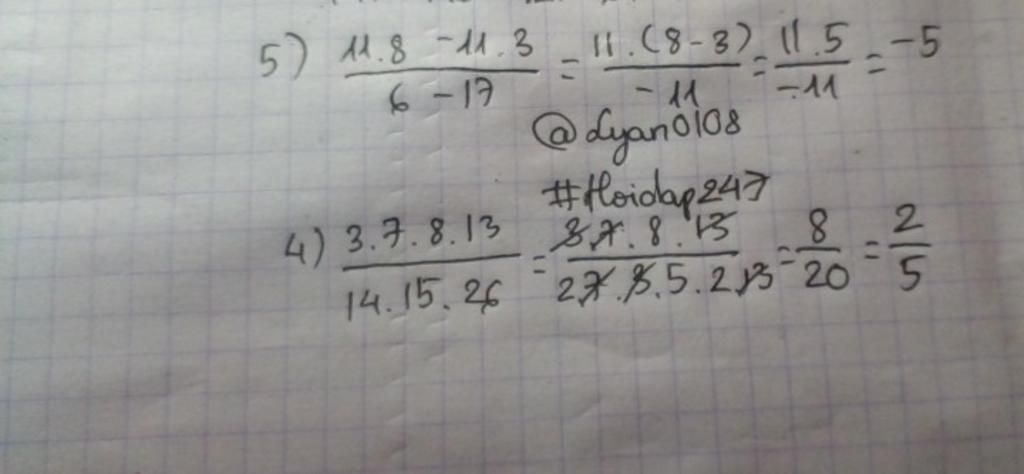 5) 11.8 -11.3 / 6 -17 = 11.(8-3) / -11 = 11.5 / -11 = -5
@dyan0108
#Hoidap247
4) 3.7.8.13 / 14.15.26 = 3.7.8.13 / 2.7.3.5.2.13 = 8/20 = 2/5